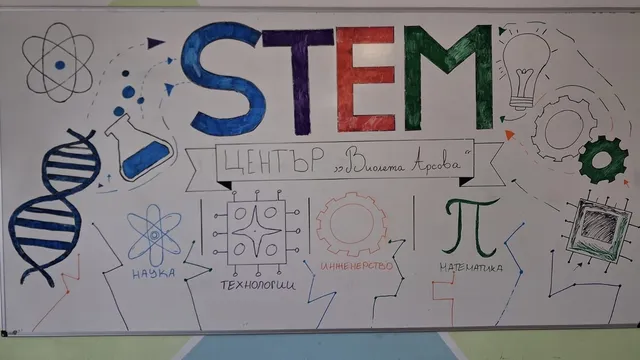 STEM
ЦЕНТЪР „Виолета Арсова“
НАУКА
ТЕХНОЛОГИИ
ИНЖЕНЕРСТВО
π
МАТЕМАТИКА